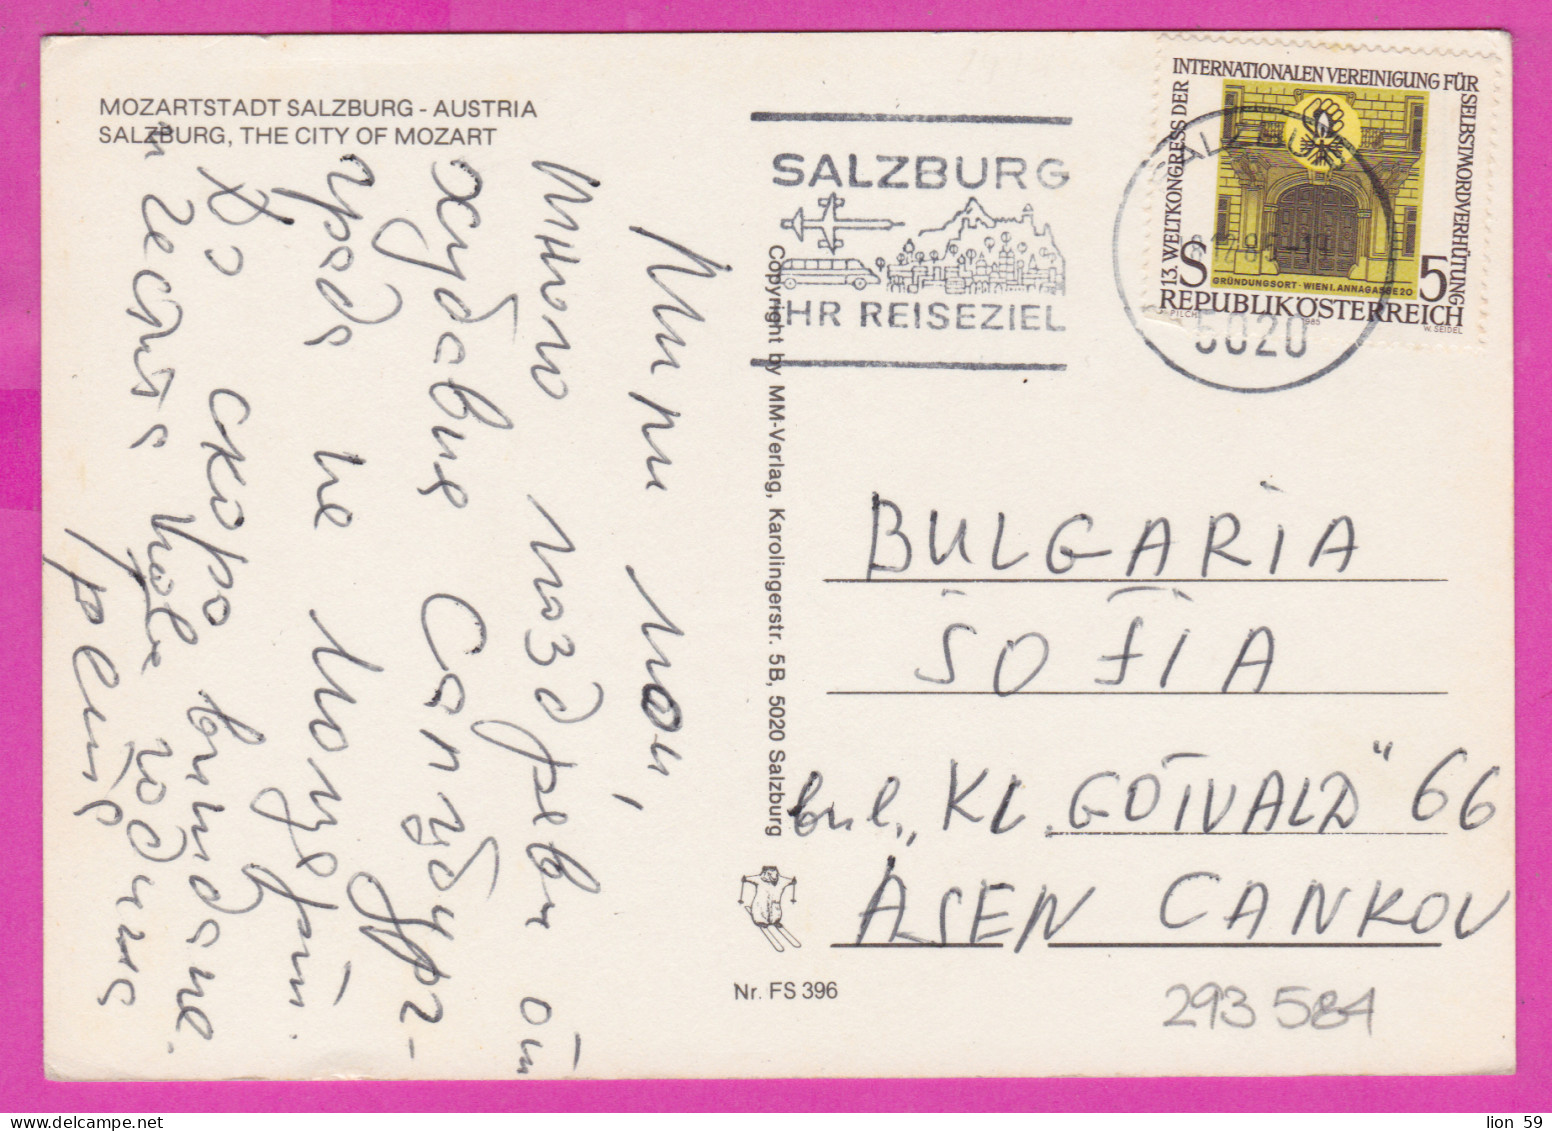 MOZARTSTADT SALZBURG - AUSTRIA
SALZBURG, THE CITY OF MOZART
Мили мои,
много поздрави от
хубавия Салцбург-
града на Моцарт.
До скоро виждане.
и честита нова година
Copyright by MM-Verlag, Karolingerstr. 5B, 5020 Salzburg
Nr. FS 396
SALZBURG
IHR REISEZIEL
SALZBURG
5020
13. WELTKONGRESS DER INTERNATIONALEN VEREINIGUNG FÜR SELBSTMORDVERHÜTUNG
GRÜNDUNGSORT · WIEN I. ANNAGASSE 20
S 5
REPUBLIK ÖSTERREICH
PILCH 1985 W. SEIDEL
BULGARIA
SOFIA
bul. „KL. GOTVALD" 66
ASEN CANKOV
293 584
lion 59